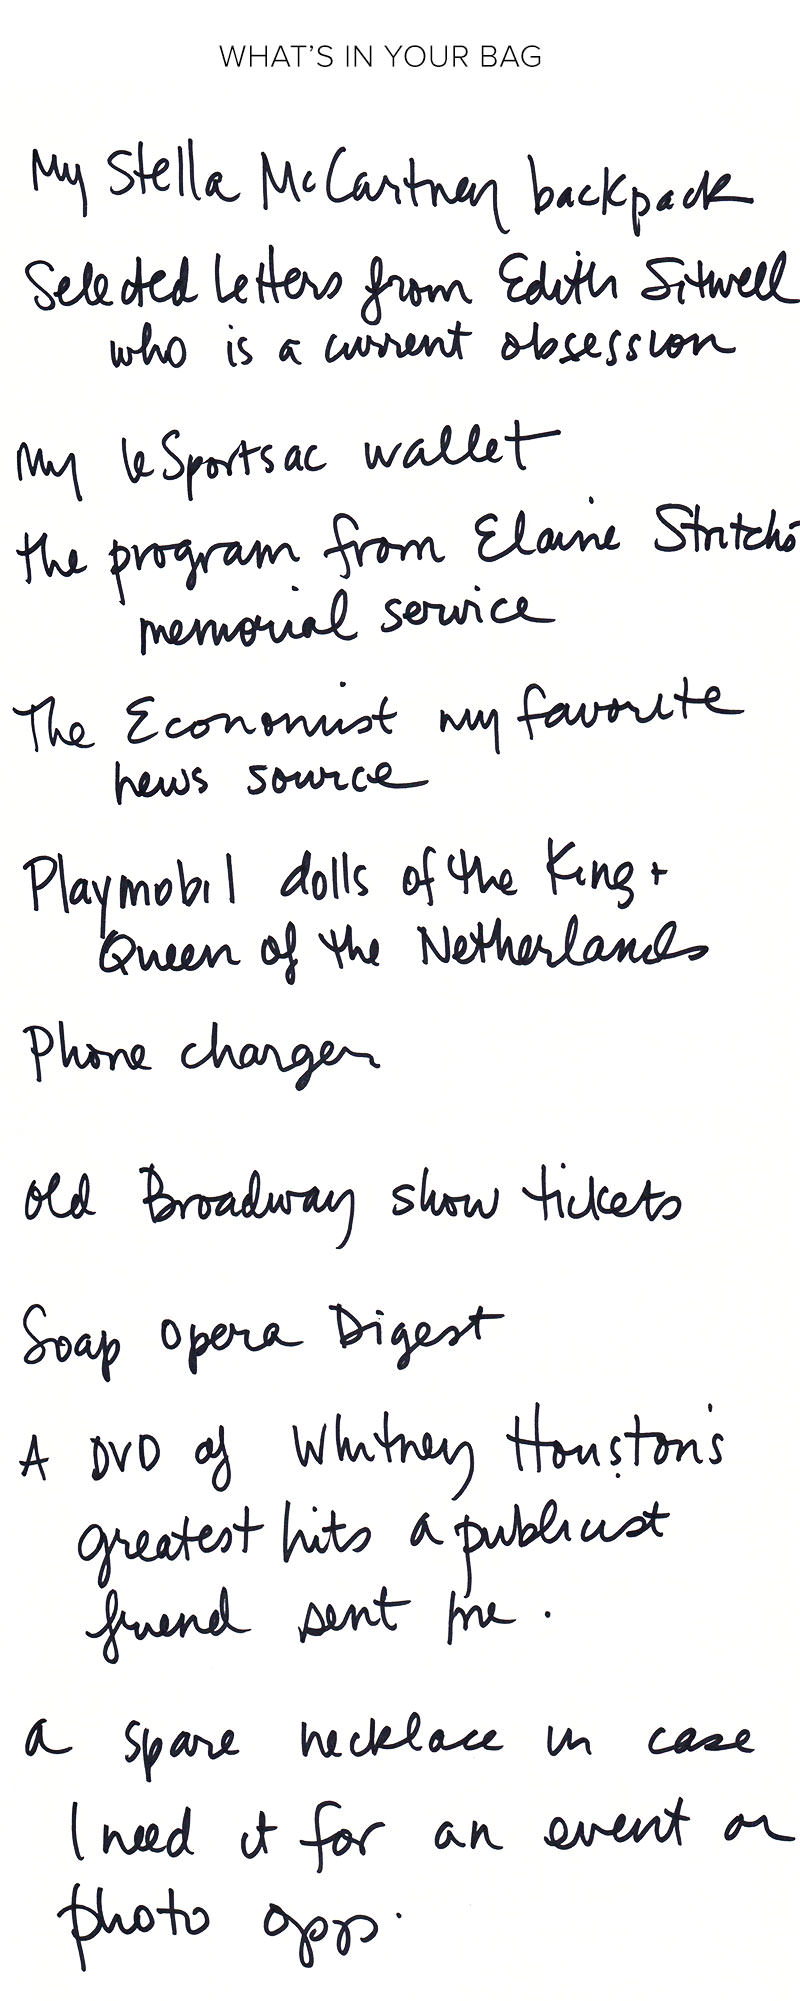 WHAT'S IN YOUR BAG
My Stella McCartney backpack
Selected Letters from Edith Sitwell
who is a current obsession
My leSportsac wallet
the program from Elaine Stritch's
memorial service
The Economist my favorite
news source
Playmobil dolls of the King +
Queen of the Netherlands
Phone charger
old Broadway show tickets
Soap Opera Digest
A DVD of Whitney Houston's
greatest hits a publicist
friend sent me.
a spare necklace in case
I need it for an event or
photo opp.